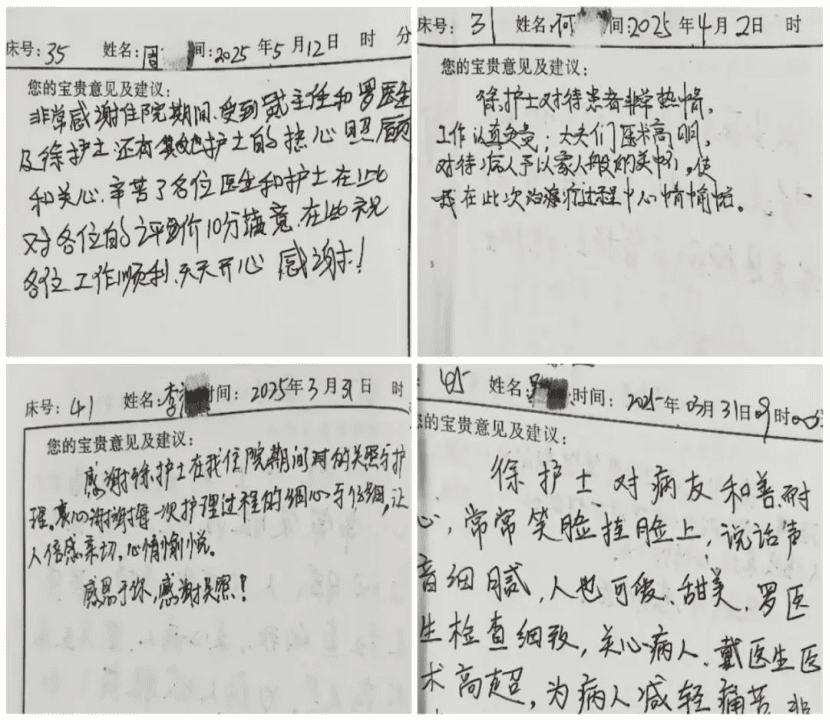 床号: 35 姓名: 周 间: 2025年5月12日 时 分
您的宝贵意见及建议:
非常感谢住院期间,受到戴主任和罗医生
及徐护士还有其她护士的热心照顾
和关心.辛苦了各位医生和护士在此
对各位的评价10分满意.在此祝
各位工作顺利,天天开心 感谢!
床号: 31 姓名: 何 间: 2025年4月2日 时
您的宝贵意见及建议:
徐护士对待患者非常热情,
工作认真负责;大夫们医术高明,
对待病人予以家人般的关怀,使
我在此次治疗过程中心情愉悦。
床号: 41 姓名: 李 时间: 2025年3月31日 时
您的宝贵意见及建议:
感谢徐护士在我住院期间对的关照与护
理。衷心谢谢每一次护理过程的细心与仔细,让
人倍感亲切,心情愉悦。
感恩于你,感谢关照!
45 姓名: 时间: 2025年03月31日09时00分
您的宝贵意见及建议:
徐护士对病友和善.耐
心,常常笑脸挂脸上,说话声
音细腻,人也可爱、甜美.罗医
生检查细致,关心病人.戴医生医
术高超,为病人减轻痛苦.非